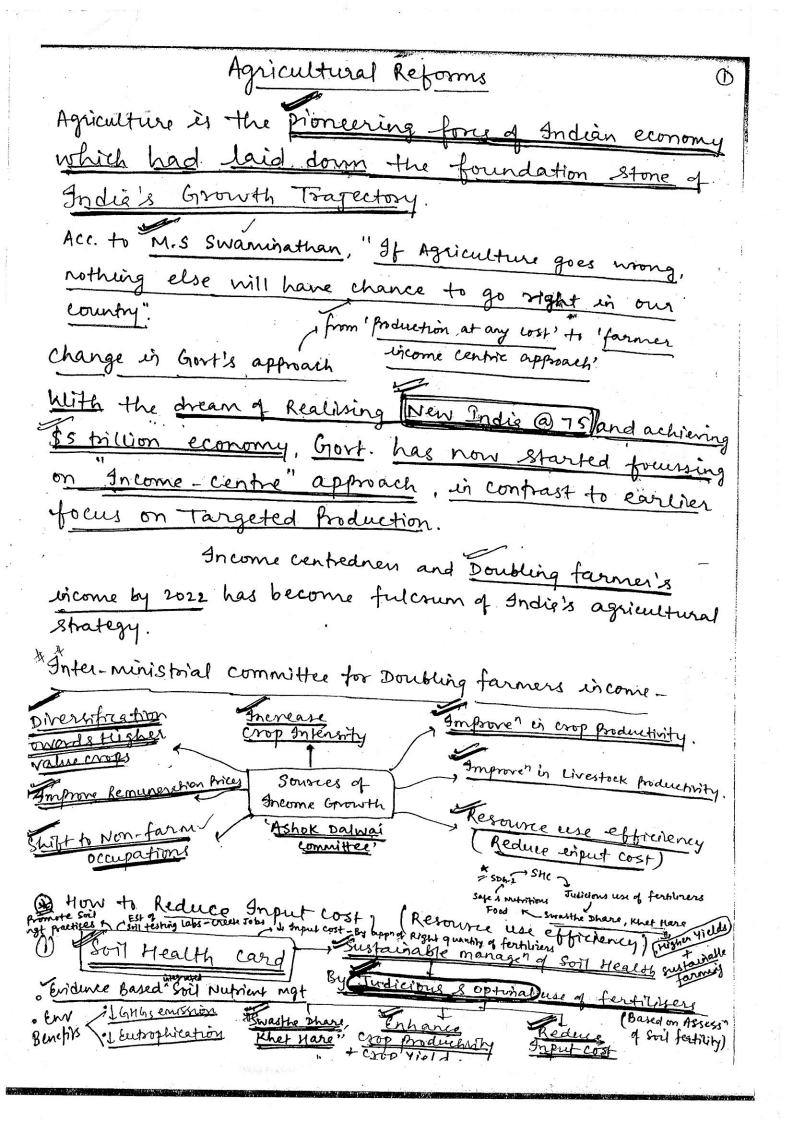 Agricultural Reforms
①
Agriculture is the pioneering force of Indian economy
which had laid down the foundation stone of
India's Growth Trajectory.
Acc. to M.S Swaminathan, "If Agriculture goes wrong,
nothing else will have chance to go right in our
country".
from 'Production at any cost' to 'farmer
income centric approach'
Change in Govt's approach
With the dream of Realising New India @ 75 and achieving
$5 trillion economy, Govt. has now started focussing
on "Income-centre" approach, in contrast to earlier
focus on Targeted Production.
Income centredness and Doubling farmer's
income by 2022 has become fulcrum of India's agricultural
strategy.
** Inter-ministrial committee for Doubling farmers income -
Diversification
owards Higher
value crops
Increase
Crop Intensity
Improveⁿ in crop productivity.
Improve Remuneration Prices
Sources of
Income Growth
Improveⁿ in Livestock Productivity.
Shift to Non-farm
occupations
'Ashok Dalwai
Committee'
Resource use efficiency
(Reduce input cost)
* SDG-2 → SHC
Safe & Nutritious
Food
Judicious use of fertilizers
Swasthe Dhare, Khet Hare
* How to Reduce Input Cost) (Resource use efficiency)
Promote Soil
mgt practices
Est of
Soil testing Labs - Create Jobs
↓ Input cost - By appⁿ of Right quantity of fertilizers
Higher Yields
+
Sustainable
farming
① Soil Health Card → Sustainable managemⁿ of Soil Health
Evidence Based integrated Soil Nutrient mgt
By Judicious & optimal use of fertilisers
(Based on Assessⁿ
of Soil fertility)
Env
Benefits
↓ GHGs emission
↓ Eutrophication
"Swasthe Dhare,
Khet Hare"
Enhance
Crop Productivity
+ Crop Yield.
Reduce
Input cost